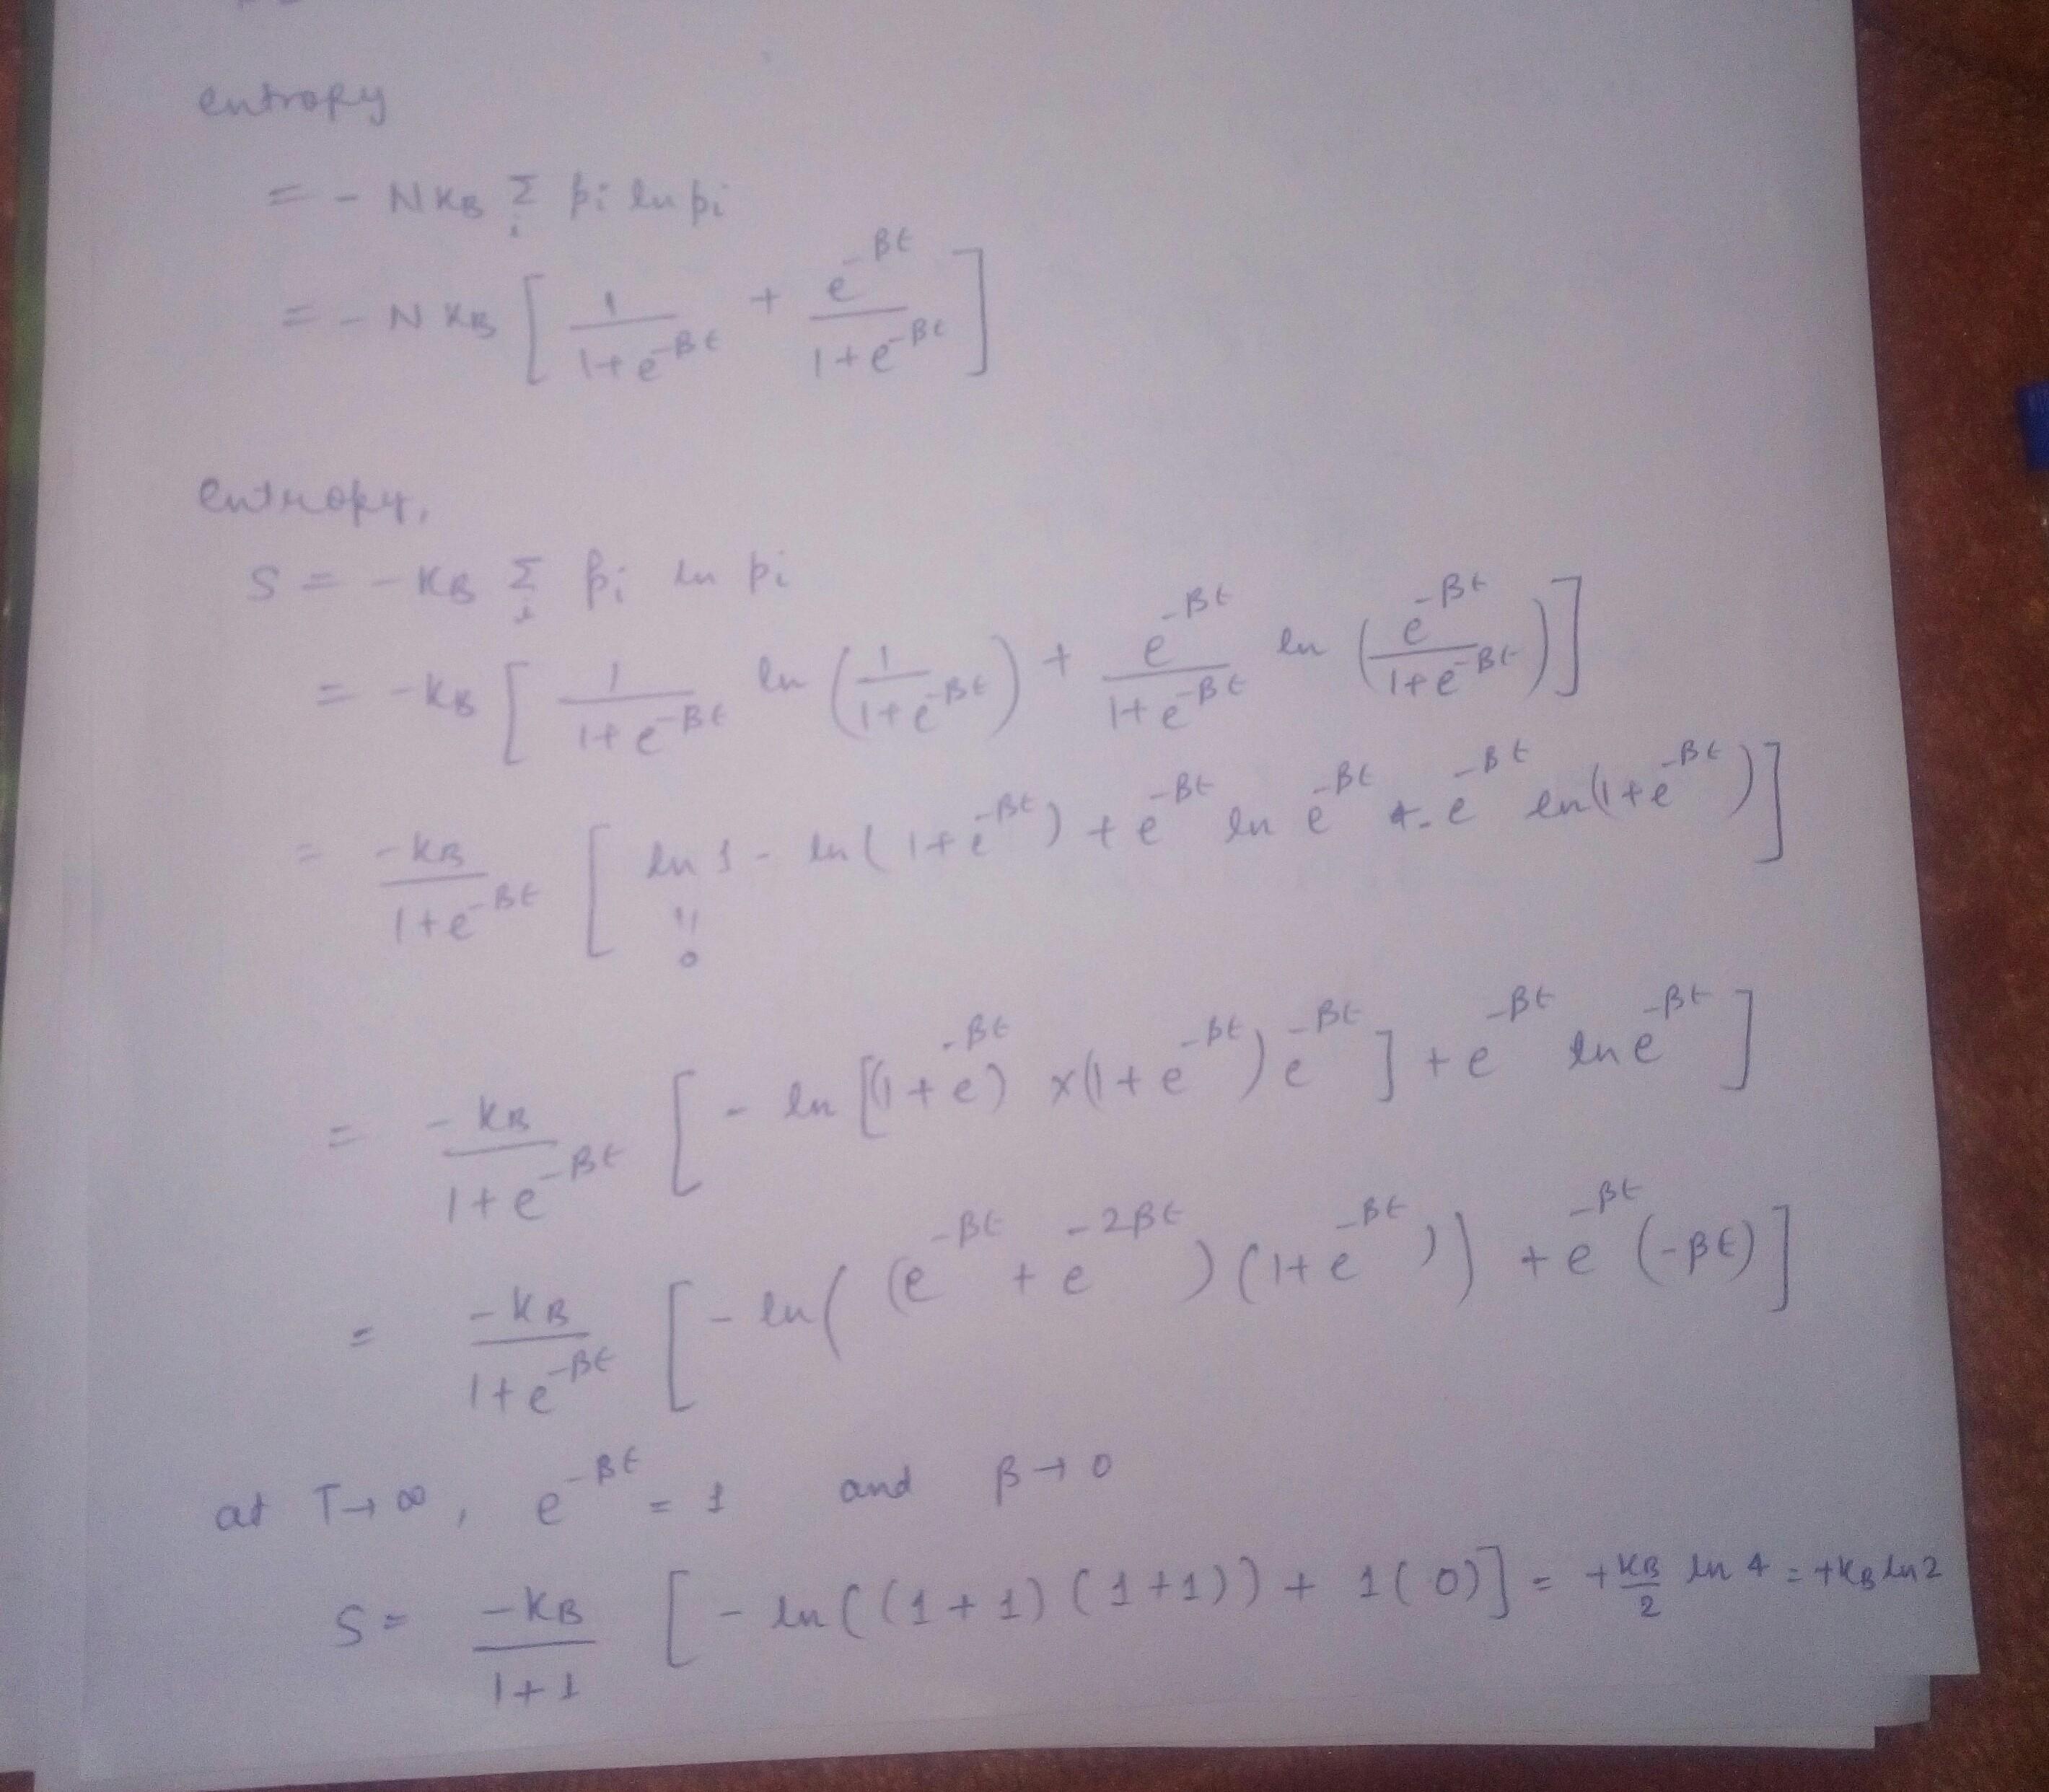 entropy
= - N K_B Σ_i p_i ln p_i
= - N K_B [ 1/(1+e^{-βϵ}) + e^{-βϵ}/(1+e^{-βϵ}) ]
entropy,
S = - K_B Σ_i p_i ln p_i
= - K_B [ 1/(1+e^{-βϵ}) ln (1/(1+e^{-βϵ})) + e^{-βϵ}/(1+e^{-βϵ}) ln (e^{-βϵ}/(1+e^{-βϵ})) ]
= -K_B/(1+e^{-βϵ}) [ ln 1 - ln(1+e^{-βϵ}) + e^{-βϵ} ln e^{-βϵ} - e^{-βϵ} ln(1+e^{-βϵ}) ]
"
0
= -K_B/(1+e^{-βϵ}) [ - ln [(1+e^{-βϵ}) × (1+e^{-βϵ}) e^{-βϵ} ] + e^{-βϵ} ln e^{-βϵ} ]
= -K_B/(1+e^{-βϵ}) [ - ln ( (e^{-βϵ} + e^{-2βϵ}) (1+e^{-βϵ}) ) + e^{-βϵ} (-βϵ) ]
at T→∞, e^{-βϵ} = 1 and β→0
S = -K_B/(1+1) [ - ln((1+1)(1+1)) + 1(0) ] = + K_B/2 ln 4 = + K_B ln 2